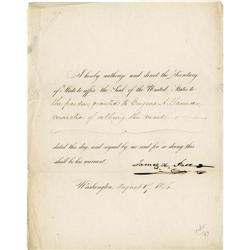 I hereby authorize and direct the Secretary
of State to affix the Seal of the United States to
the pardon granted to Eugene A.
convicted of robbing the mail
dated this day and signed by me and for so doing this
shall be his warrant.
Washington, August 17,